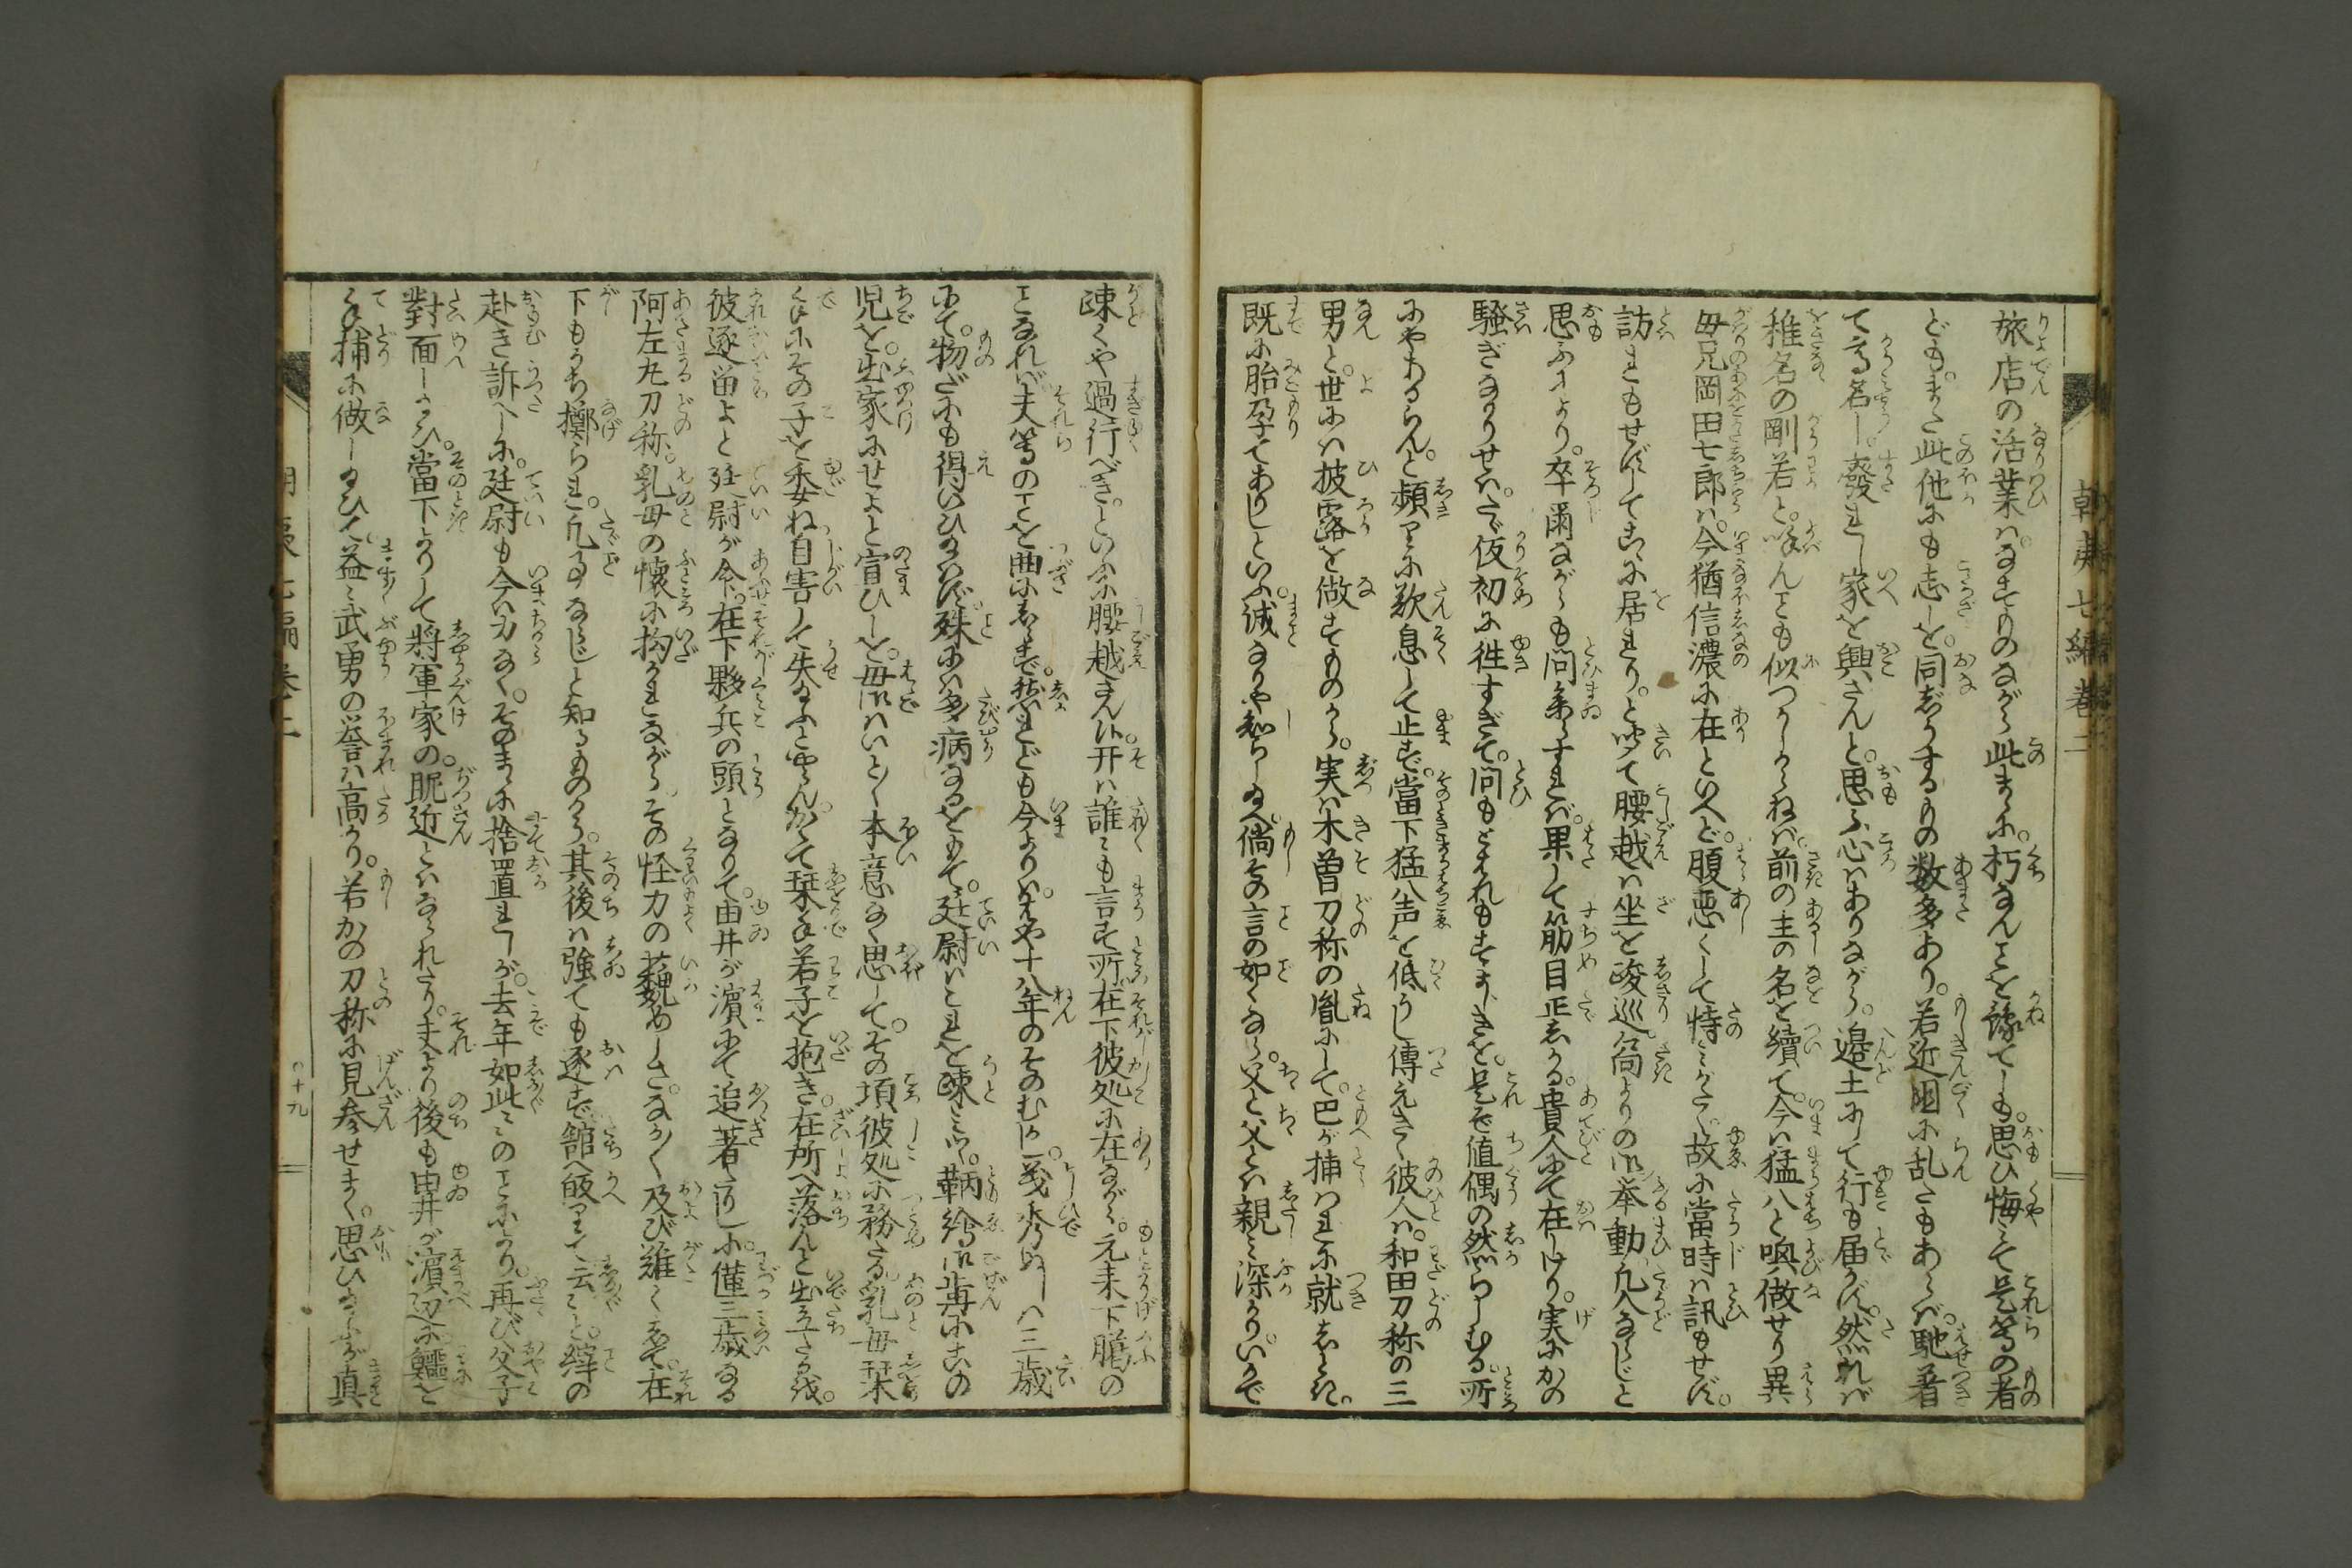 旅店の活業は。なすものながら此まゝに。朽なんことを豫てしも。思ひ悔みて是等の者
ども。また此他にも志を。同じうするもの数多あり。若近国に乱だもあらば。馳着
て高名し。癈れし家を興さんと。思ふ心はありながら。邉土にて行も届かず。然れば
稚名の剛若と。喚んとも似つかしからねば。前の主の名を續て。今は猛八と喚做せり異
母兄岡田七郎は。今猶信濃に在といへど。腹悪くして恃みがたく。故に當時は訊もせず。
訪れもせずしてこゝに居れり。と聞て腰越は坐を逡巡。向よりの御挙動。凡人ならじと
思ふにより。卒尓ながらも問参らすれば。果して筋目正しかる。貴人にて在しけり。実にかの
騒ぎなかりせば。たゞ仮初に徃すぎて。問もとはれもすまじきを。是ぞ値偶の然らしむる。所
にやあるらん。と頻りに歎息して止ず。當下猛八声を低うし傳えきく彼人は。和田刀称の三
男と。世には披露を做すものから。実は木曽刀称の胤にして。巴が捕はれに就しとき。
既に胎孕てありしといふ。誠なりや知らしめ給へ。倘その言の如くなら。父と父とは親み深かり。いかで
疎くや過行べき。といふに腰越さん候。开は誰も言す所。在下彼処に在ながら。元来下臈の
ことなれば。夫等のことを曲に知らず。然れども今よりは。はや十八年のそのむかし。義秀ぬしは三歳
にて。物だにも得いひたまはず。殊には多病なるをもて。廷尉はこれを疎みつ。鞆繪御前にこの
児を。出家にせよと宣ひしを。毋御はいと〳〵本意なく思して。その項彼処に務たる。乳母栞
手にその子を委ね自害して失給ふとやらん。かくて栞手若子を抱き。在所へ落んと出立さるを。
彼逐畄よと廷尉が令。在下夥兵の頭となりて。由井が濱にて追著たりしに。僅三歳なる
阿左丸刀称。乳母の懐に抱かれながら。その怪力の蘶々しさ。なか〳〵及び難くして。在
下もうち擲られ。凡事ならじと知るものから。其後は強ても逐ず。舘へ皈りて云々と。縡の
赴き訴へしに。廷尉も今は力なく。そのまゝに捨置れしが。去年如此〳〵のことにより。再び父子
對面したまひ。當下よりして將軍家の。眤近とはなられたり。夫より後も由井が濱辺に鱷を
手捕に做したまひて。益〻武勇の誉は高かり。若かの刀称に見参せまく。思ひたまふが真